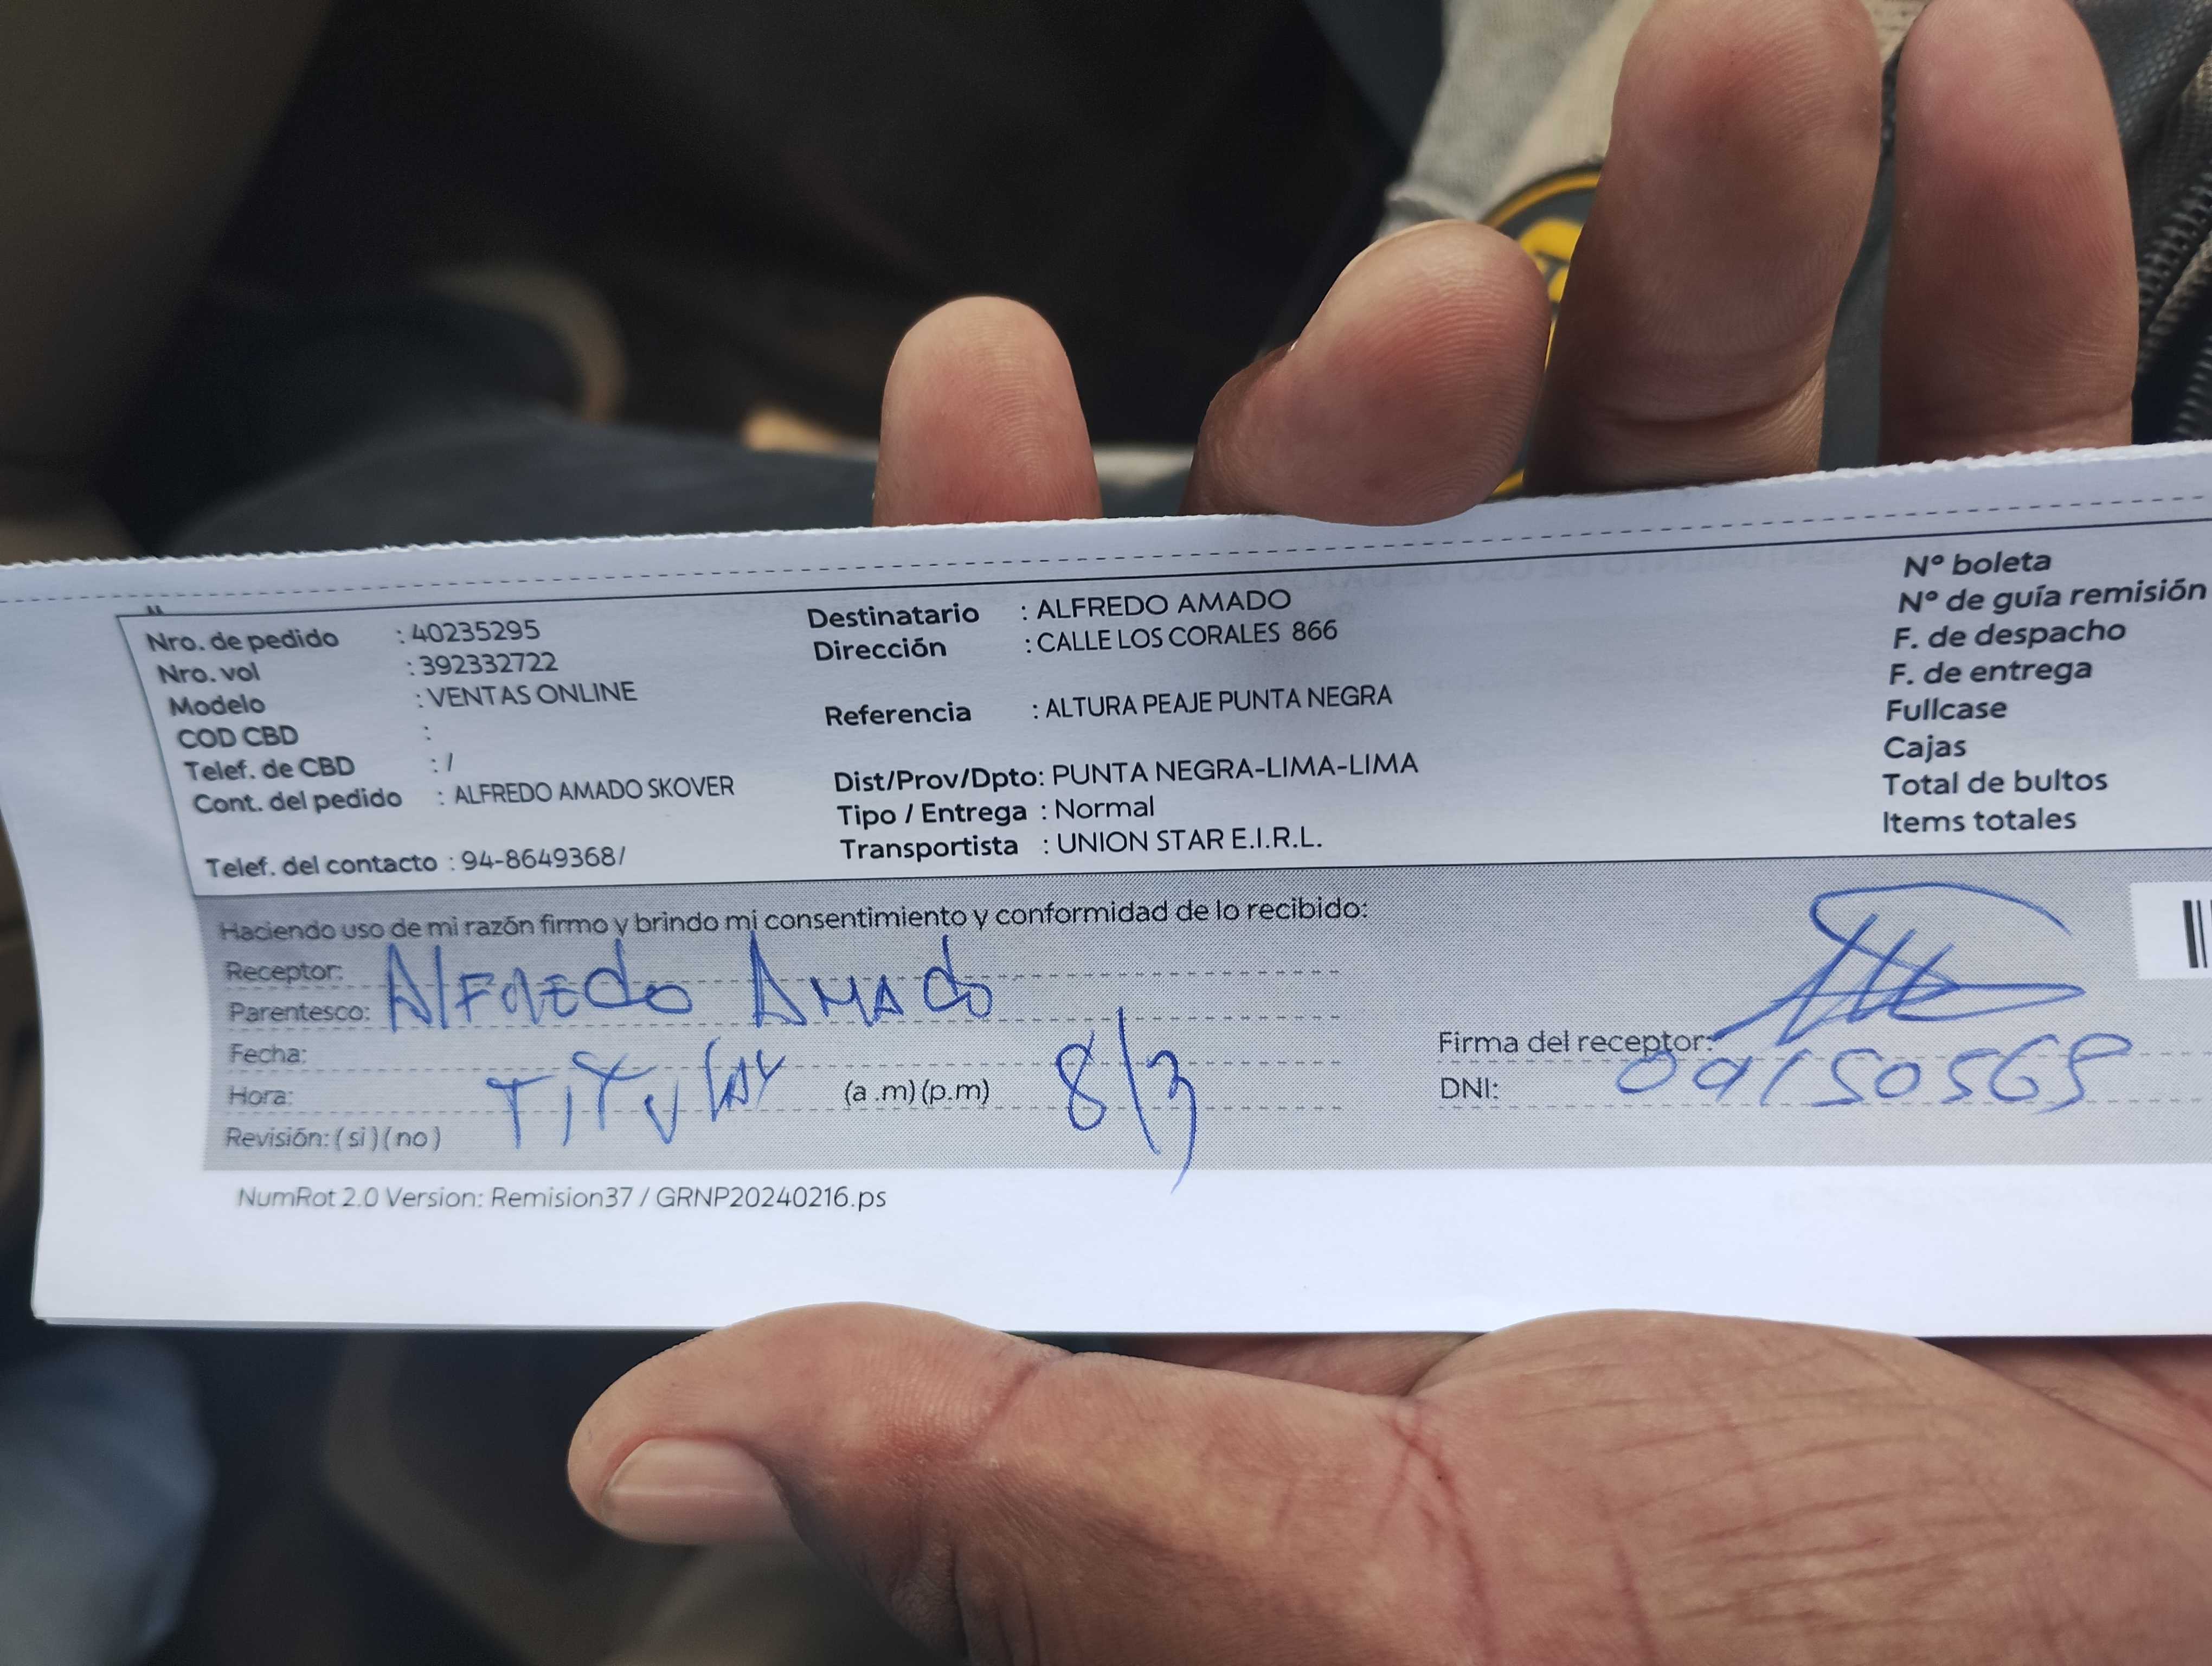 Nro. de pedido : 40235295
Nro. vol : 392332722
Modelo : VENTAS ONLINE
COD CBD :
Telef. de CBD : /
Cont. del pedido : ALFREDO AMADO SKOVER
Telef. del contacto : 94-8649368/
Destinatario : ALFREDO AMADO
Dirección : CALLE LOS CORALES 866
Referencia : ALTURA PEAJE PUNTA NEGRA
Dist/Prov/Dpto: PUNTA NEGRA-LIMA-LIMA
Tipo / Entrega : Normal
Transportista : UNION STAR E.I.R.L.
Nº boleta
Nº de guía remisión
F. de despacho
F. de entrega
Fullcase
Cajas
Total de bultos
Items totales
Haciendo uso de mi razón firmo y brindo mi consentimiento y conformidad de lo recibido:
Receptor: Alfredo Amado
Parentesco:
Fecha:
Hora: Titular (a .m) (p.m) 8/3
Revisión: ( si ) ( no )
Firma del receptor:
DNI:
NumRot 2.0 Version: Remision37 / GRNP20240216.ps